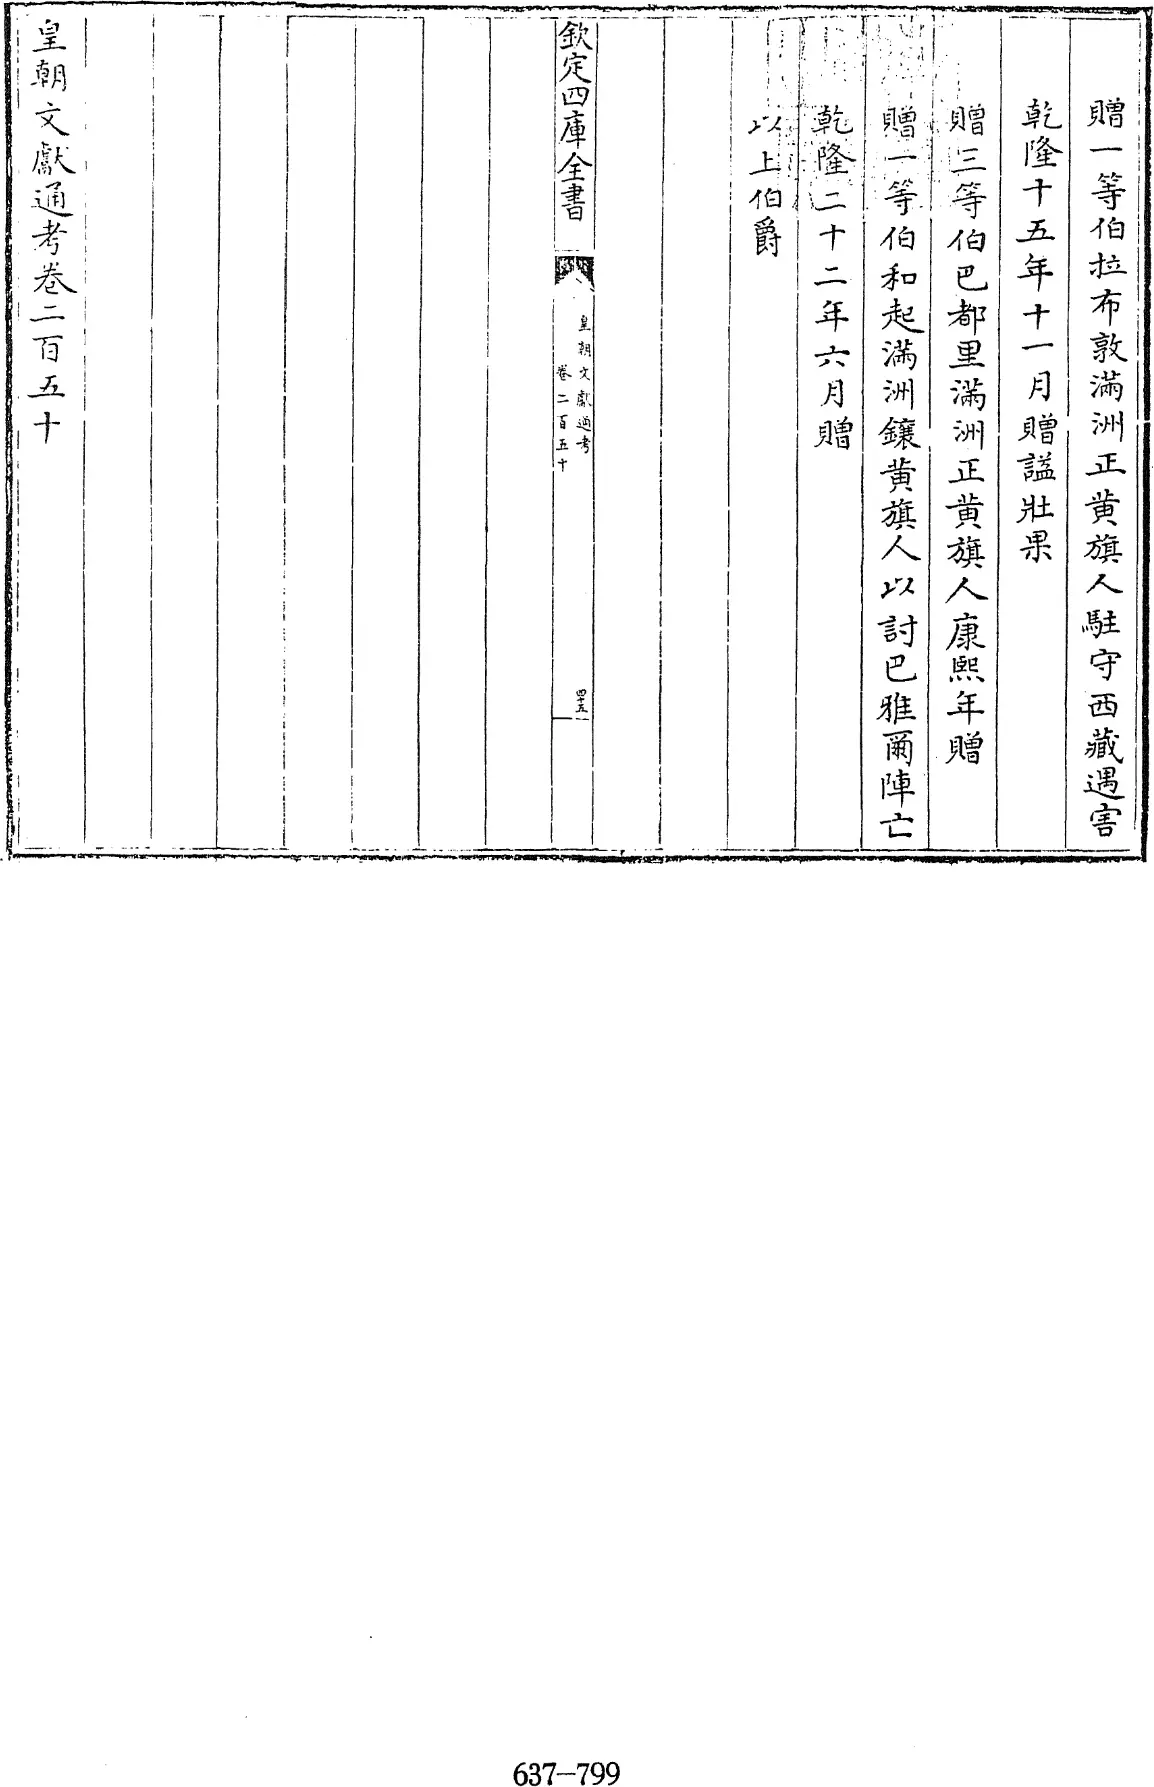 贈一等伯拉布敦滿洲正黄旗人駐守西藏遇害
乾隆十五年十一月贈諡壯果
贈三等伯巴都里滿洲正黄旗人康熙年贈
贈一等伯和起滿洲鑲黄旗人以討巴雅爾陣亡
乾隆二十二年六月贈
以上伯爵
欽定四庫全書
皇朝文獻通考
卷二百五十
四十五
皇朝文獻通考卷二百五十
637-799